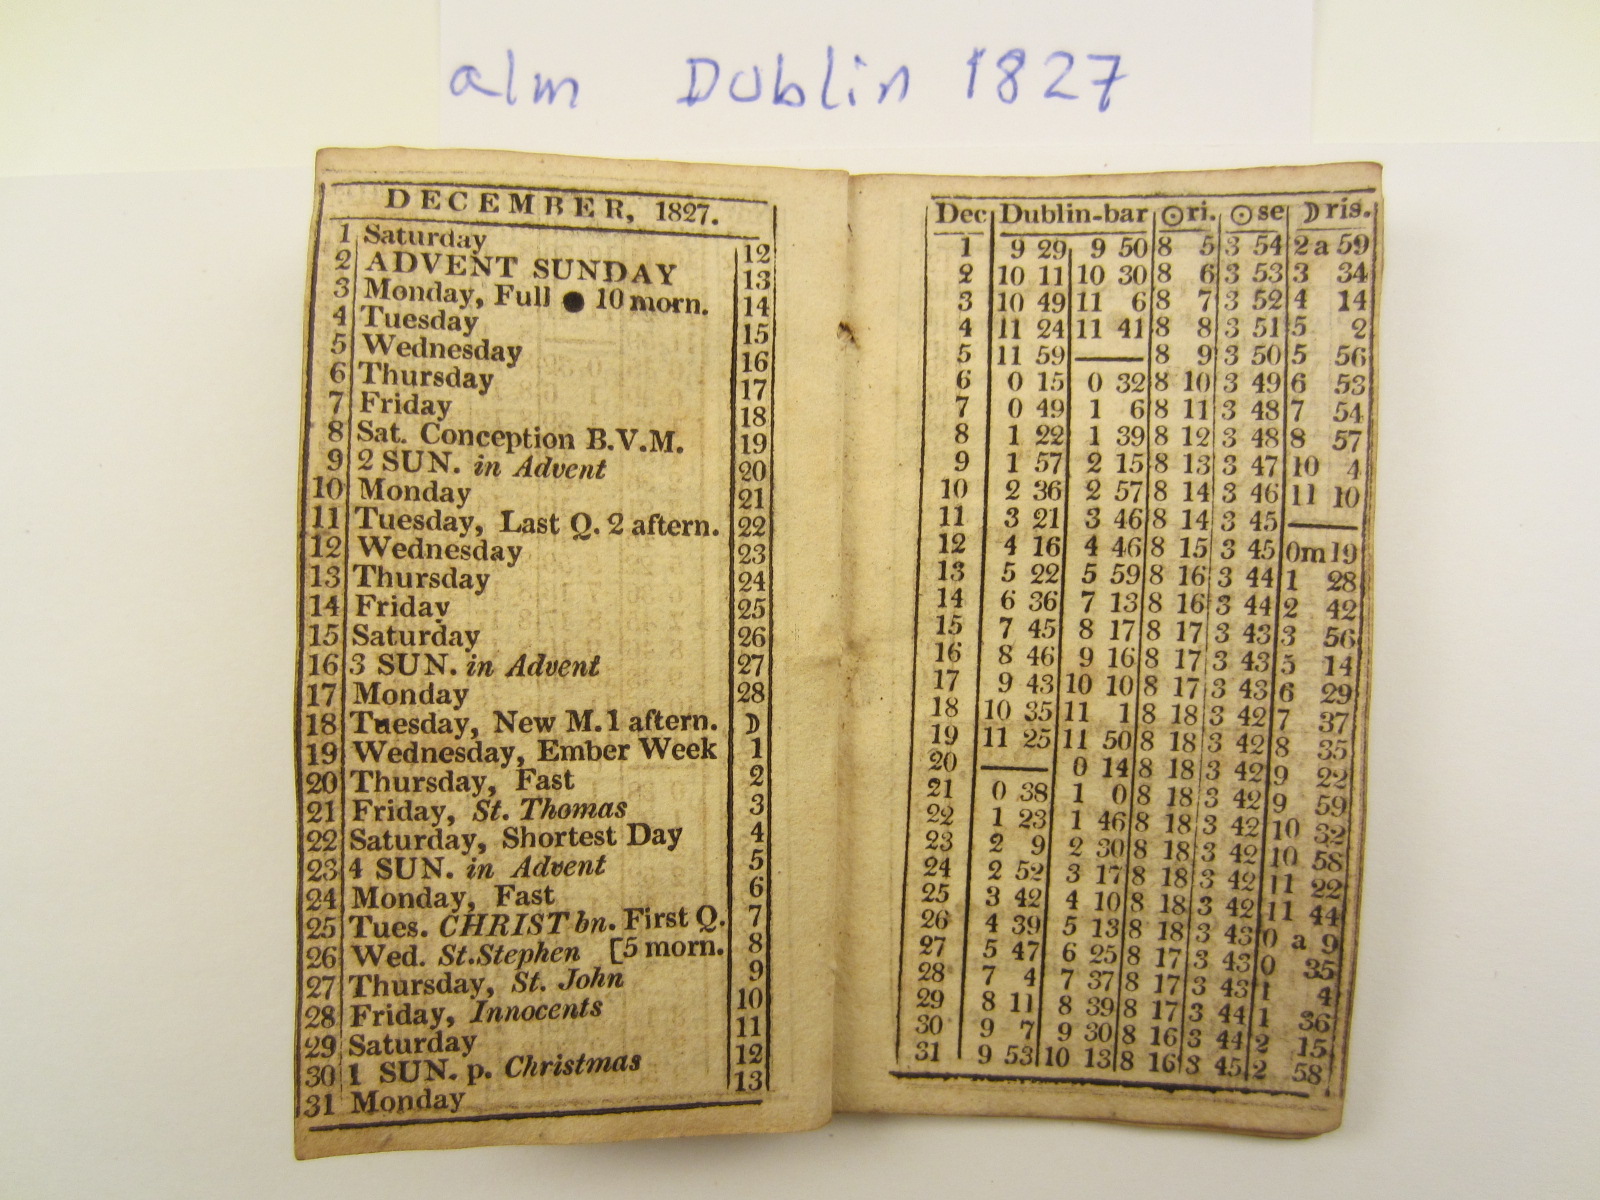 alm Dublin 1827
DECEMBER, 1827.
1 Saturday 12
2 ADVENT SUNDAY 13
3 Monday, Full ● 10 morn. 14
4 Tuesday 15
5 Wednesday 16
6 Thursday 17
7 Friday 18
8 Sat. Conception B.V.M. 19
9 2 SUN. in Advent 20
10 Monday 21
11 Tuesday, Last Q. 2 aftern. 22
12 Wednesday 23
13 Thursday 24
14 Friday 25
15 Saturday 26
16 3 SUN. in Advent 27
17 Monday 28
18 Tuesday, New M. 1 aftern. D
19 Wednesday, Ember Week 1
20 Thursday, Fast 2
21 Friday, St. Thomas 3
22 Saturday, Shortest Day 4
23 4 SUN. in Advent 5
24 Monday, Fast 6
25 Tues. CHRIST bn. First Q. 7
26 Wed. St. Stephen [5 morn. 8
27 Thursday, St. John 9
28 Friday, Innocents 10
29 Saturday 11
30 1 SUN. p. Christmas 12
31 Monday 13
Dec Dublin-bar ☉ri. ☉se D ris.
1 9 29 9 50 8 5 3 54 2 a 59
2 10 11 10 30 8 6 3 53 3 34
3 10 49 11 6 8 7 3 52 4 14
4 11 24 11 41 8 8 3 51 5 2
5 11 59 — 8 9 3 50 5 56
6 0 15 0 32 8 10 3 49 6 53
7 0 49 1 6 8 11 3 48 7 54
8 1 22 1 39 8 12 3 48 8 57
9 1 57 2 15 8 13 3 47 10 4
10 2 36 2 57 8 14 3 46 11 10
11 3 21 3 46 8 14 3 45 —
12 4 16 4 46 8 15 3 45 0m19
13 5 22 5 59 8 16 3 44 1 28
14 6 36 7 13 8 16 3 44 2 42
15 7 45 8 17 8 17 3 43 3 56
16 8 46 9 16 8 17 3 43 5 14
17 9 43 10 10 8 17 3 43 6 29
18 10 35 11 1 8 18 3 42 7 37
19 11 25 11 50 8 18 3 42 8 35
20 — 0 14 8 18 3 42 9 22
21 0 38 1 0 8 18 3 42 9 59
22 1 23 1 46 8 18 3 42 10 32
23 2 9 2 30 8 18 3 42 10 58
24 2 52 3 17 8 18 3 42 11 22
25 3 42 4 10 8 18 3 42 11 44
26 4 39 5 13 8 18 3 43 0 a 9
27 5 47 6 25 8 17 3 43 0 35
28 7 4 7 37 8 17 3 43 1 4
29 8 11 8 39 8 17 3 44 1 36
30 9 7 9 30 8 16 3 44 2 15
31 9 53 10 13 8 16 3 45 2 58